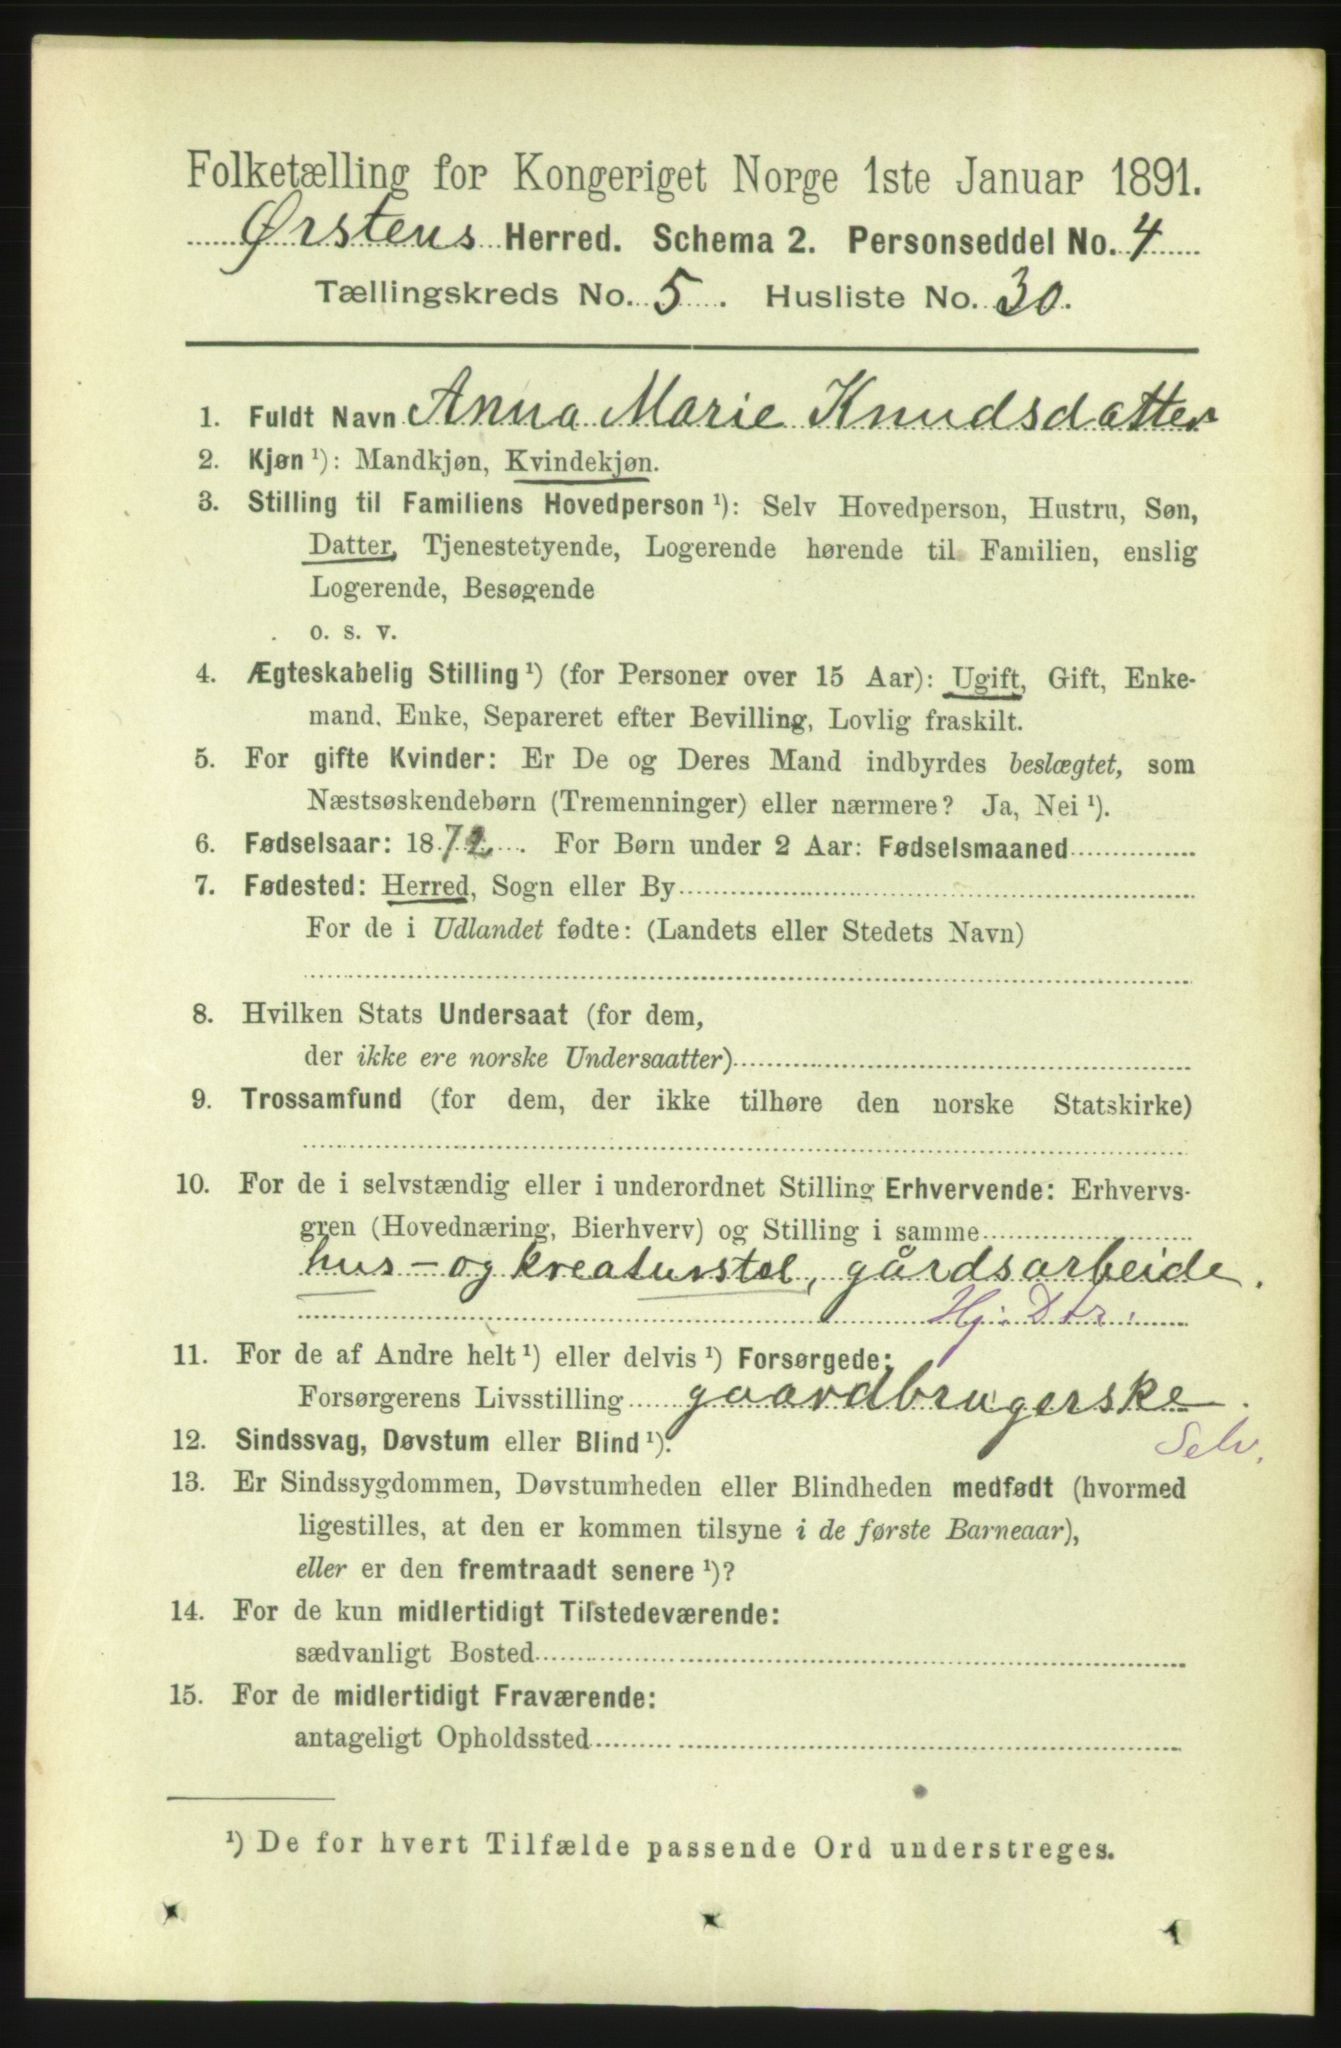 Folketælling for Kongeriget Norge 1ste Januar 1891.
Ørstens Herred. Schema 2. Personseddel No. 4
Tællingskreds No. 5. Husliste No. 30.
1. Fuldt Navn Anna Marie Knudsdatter
2. Kjøn ¹): Mandkjøn, Kvindekjøn.
3. Stilling til Familiens Hovedperson ¹): Selv Hovedperson, Hustru, Søn,
Datter, Tjenestetyende, Logerende hørende til Familien, enslig
Logerende, Besøgende
o. s. v.
4. Ægteskabelig Stilling ¹) (for Personer over 15 Aar): Ugift, Gift, Enke-
mand, Enke, Separeret efter Bevilling, Lovlig fraskilt.
5. For gifte Kvinder: Er De og Deres Mand indbyrdes beslægtet, som
Næstsøskendebørn (Tremenninger) eller nærmere? Ja, Nei ¹).
6. Fødselsaar: 1872. For Børn under 2 Aar: Fødselsmaaned
7. Fødested: Herred, Sogn eller By
For de i Udlandet fødte: (Landets eller Stedets Navn)
8. Hvilken Stats Undersaat (for dem,
der ikke ere norske Undersaatter)
9. Trossamfund (for dem, der ikke tilhøre den norske Statskirke)
10. For de i selvstændig eller i underordnet Stilling Erhvervende: Erhvervs-
gren (Hovednæring, Bierhverv) og Stilling i samme
hus- og kreaturstel, gårdsarbeide.
Hj. Dtr.
11. For de af Andre helt ¹) eller delvis ¹) Forsørgede:
Forsørgerens Livsstilling gaardbrugerske.
12. Sindssvag, Døvstum eller Blind ¹). Selv.
13. Er Sindssygdommen, Døvstumheden eller Blindheden medfødt (hvormed
ligestilles, at den er kommen tilsyne i de første Barneaar),
eller er den fremtraadt senere ¹)?
14. For de kun midlertidigt Tilstedeværende:
sædvanligt Bosted
15. For de midlertidigt Fraværende:
antageligt Opholdssted
¹) De for hvert Tilfælde passende Ord understreges.